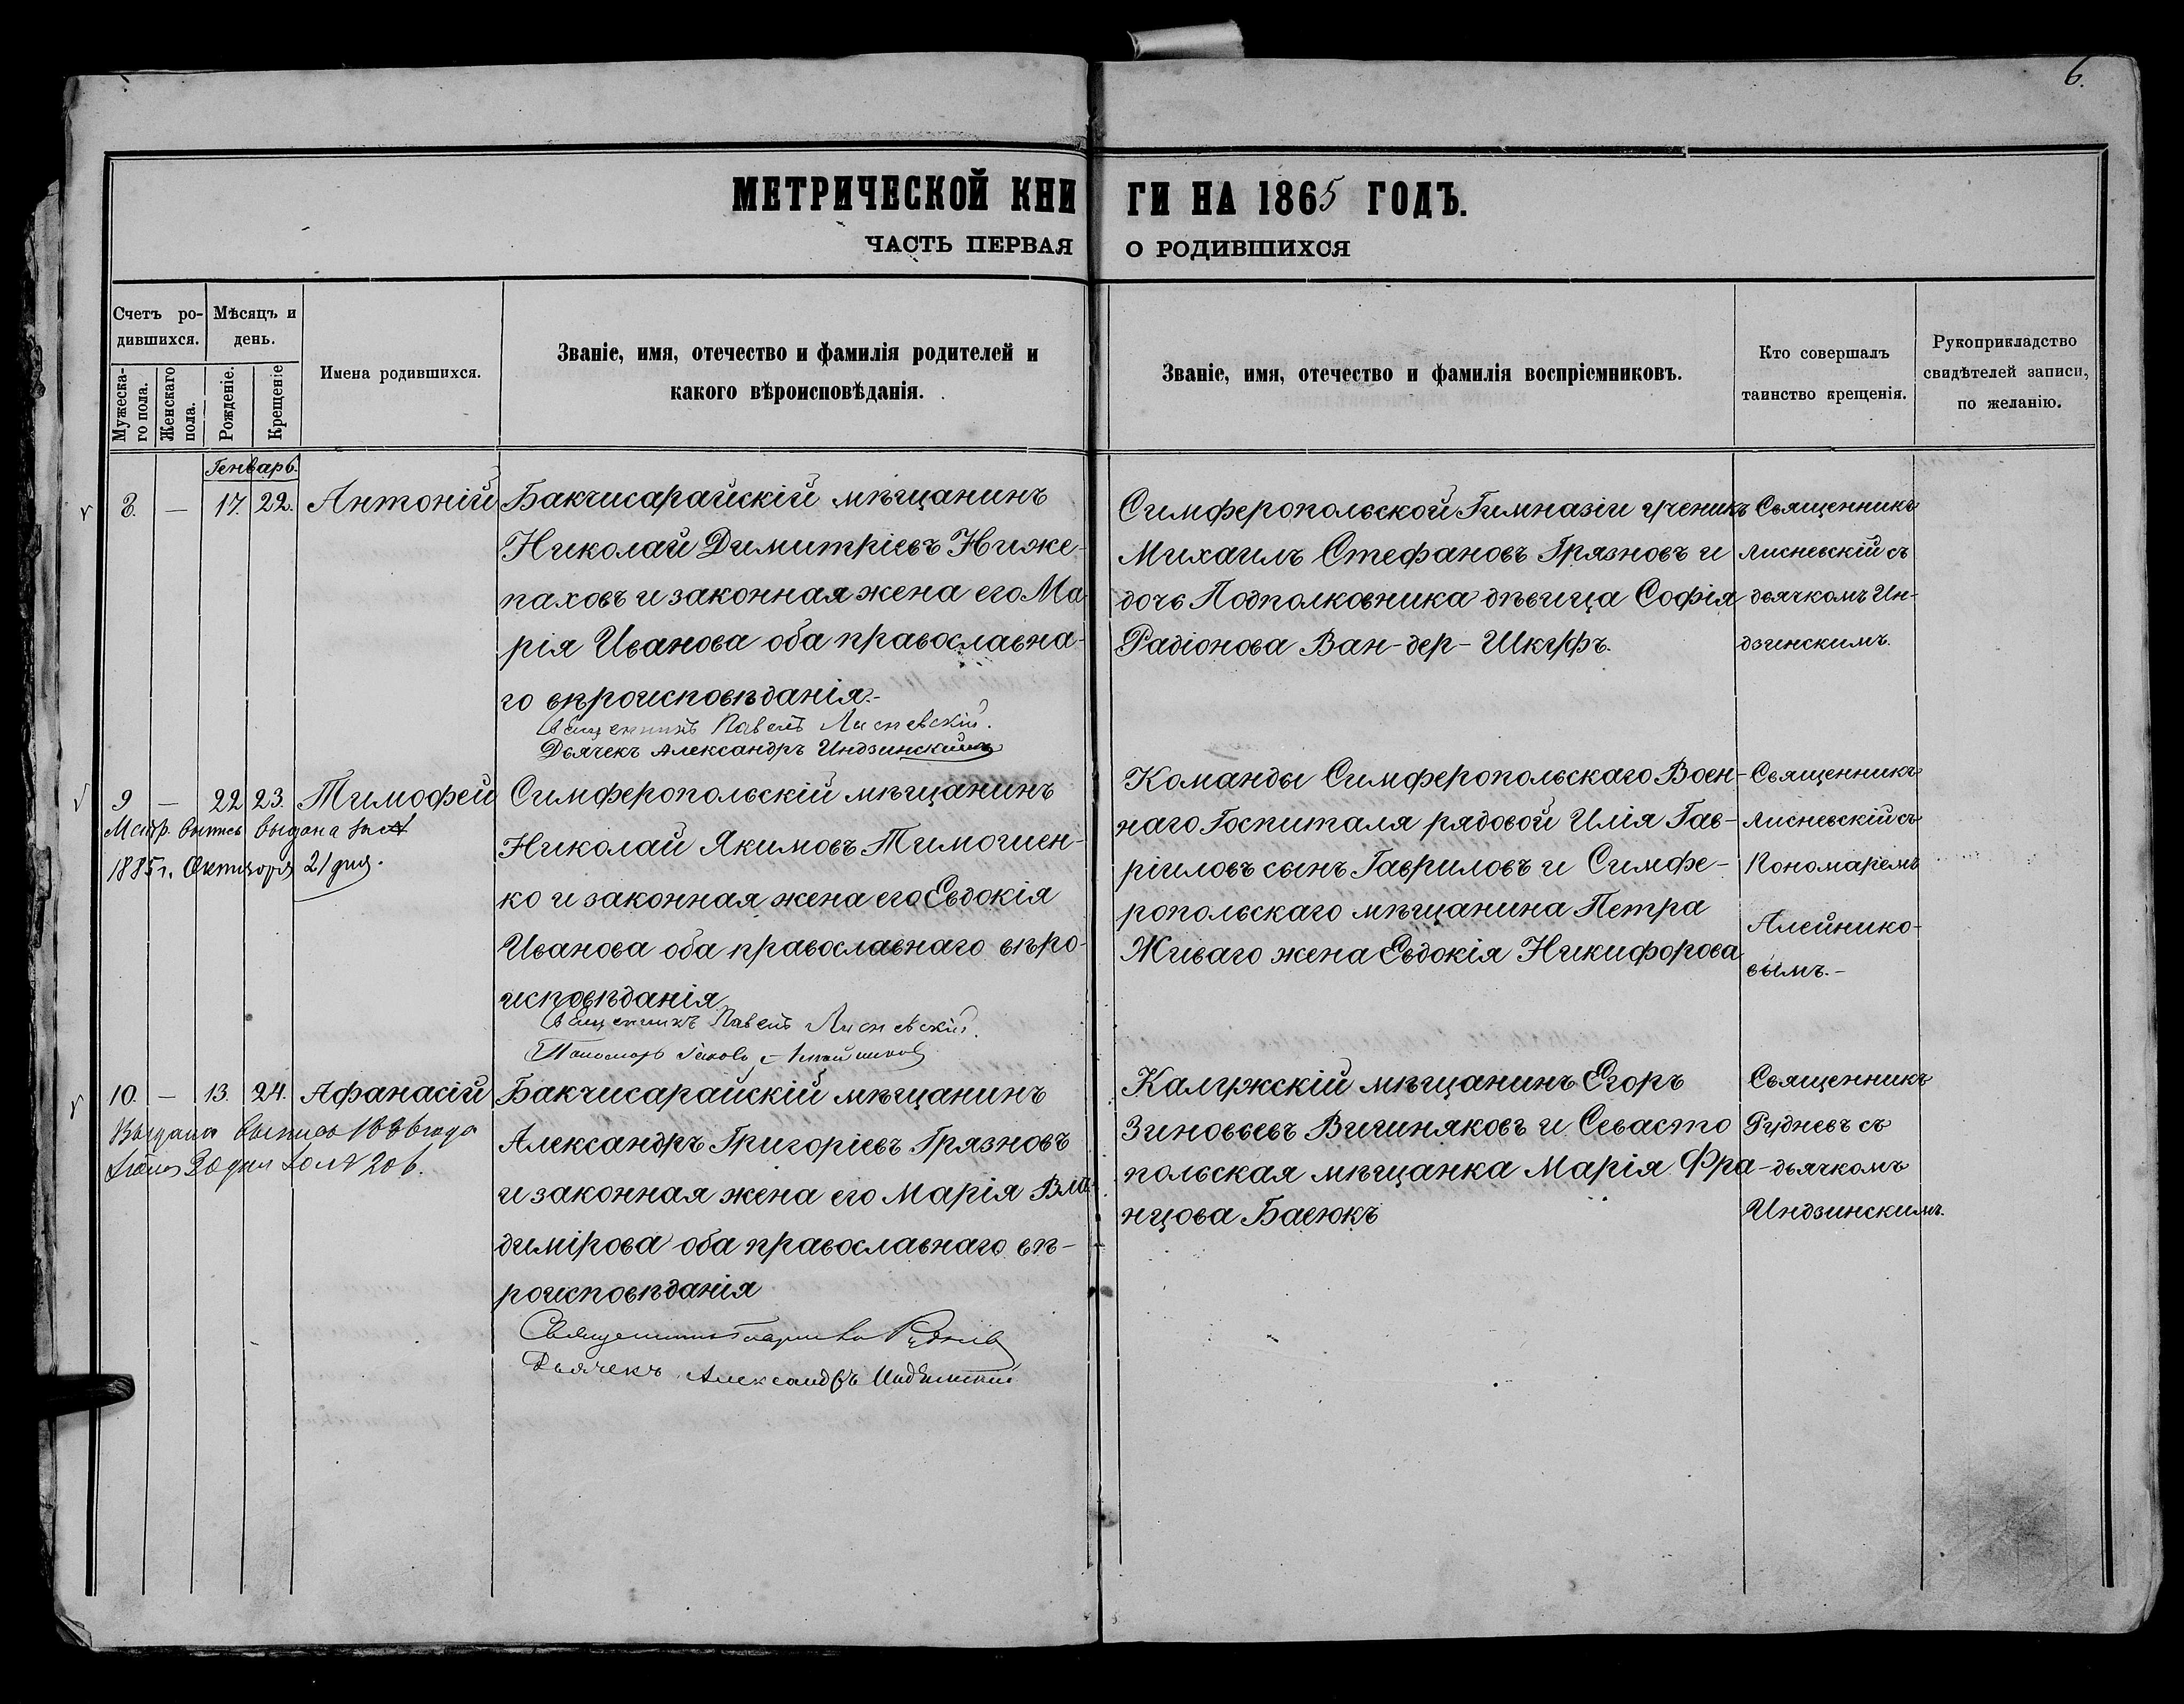 6.
МЕТРИЧЕСКОЙ КНИГИ НА 1865 ГОДЪ.
ЧАСТЬ ПЕРВАЯ О РОДИВШИХСЯ
Счетъ ро-
дившихся.
Мужеска-
го пола.
Женскаго
пола.
Мѣсяцъ и
день.
Рожденіе.
Крещеніе
Имена родившихся.
Званіе, имя, отечество и фамилія родителей и
какого вѣроисповѣданія.
Званіе, имя, отечество и фамилія воспріемниковъ.
Кто совершалъ
таинство крещенія.
Рукоприкладство
свидѣтелей записи,
по желанію.
Генварь.
8. — 17. 22. Антоній
Бакчисарайскій мѣщанинъ
Николай Димитріевъ Ниже-
паховъ и законная жена его Ма-
рія Иванова оба православна-
го вѣроисповѣданія.-
Священникъ Павелъ Лисневскій.
Дьячекъ Александръ Индзинскій
Симферопольской Гимназіи ученикъ
Михаилъ Стефановъ Грязновъ и
дочь Подполковника дѣвица Софія
Радіонова Ван-дер-Шкруфъ.
Священникъ
Лисневскій съ
дьячкомъ Ин-
дзинскимъ.
9 — 22 23. Тимофей
Метр. выпись выдана за №
1885 г. Октября 21 дня.
Симферопольскій мѣщанинъ
Николай Якимовъ Тимошен-
ко и законная жена его Евдокія
Иванова оба православнаго вѣро-
исповѣданія
Священникъ Павелъ Лисневскій.
Пономарь
Команды Симферопольскаго Воен-
наго Госпиталя рядовой Илія Гав-
ріиловъ сынъ Гавриловъ и Симфе-
ропольскаго мѣщанина Петра
Живаго жена Евдокія Никифорова
Священникъ
Лисневскій съ
Пономаремъ
Алейнико-
вымъ.-
10. — 13. 24. Афанасій
Выдана выпись 1886 года
30 дня за № 206.
Бакчисарайскій мѣщанинъ
Александръ Григоріевъ Грязновъ
и законная жена его Марія Вла-
димірова оба православнаго вѣ-
роисповѣданія
Священникъ Рудневъ
Дьячекъ Александръ Индзинскій
Калужскій мѣщанинъ Егоръ
Зиновьевъ Вишняковъ и Севасто
польская мѣщанка Марія Фра-
нцова Басюкъ
Священникъ
Рудневъ съ
дьячкомъ
Индзинскимъ.